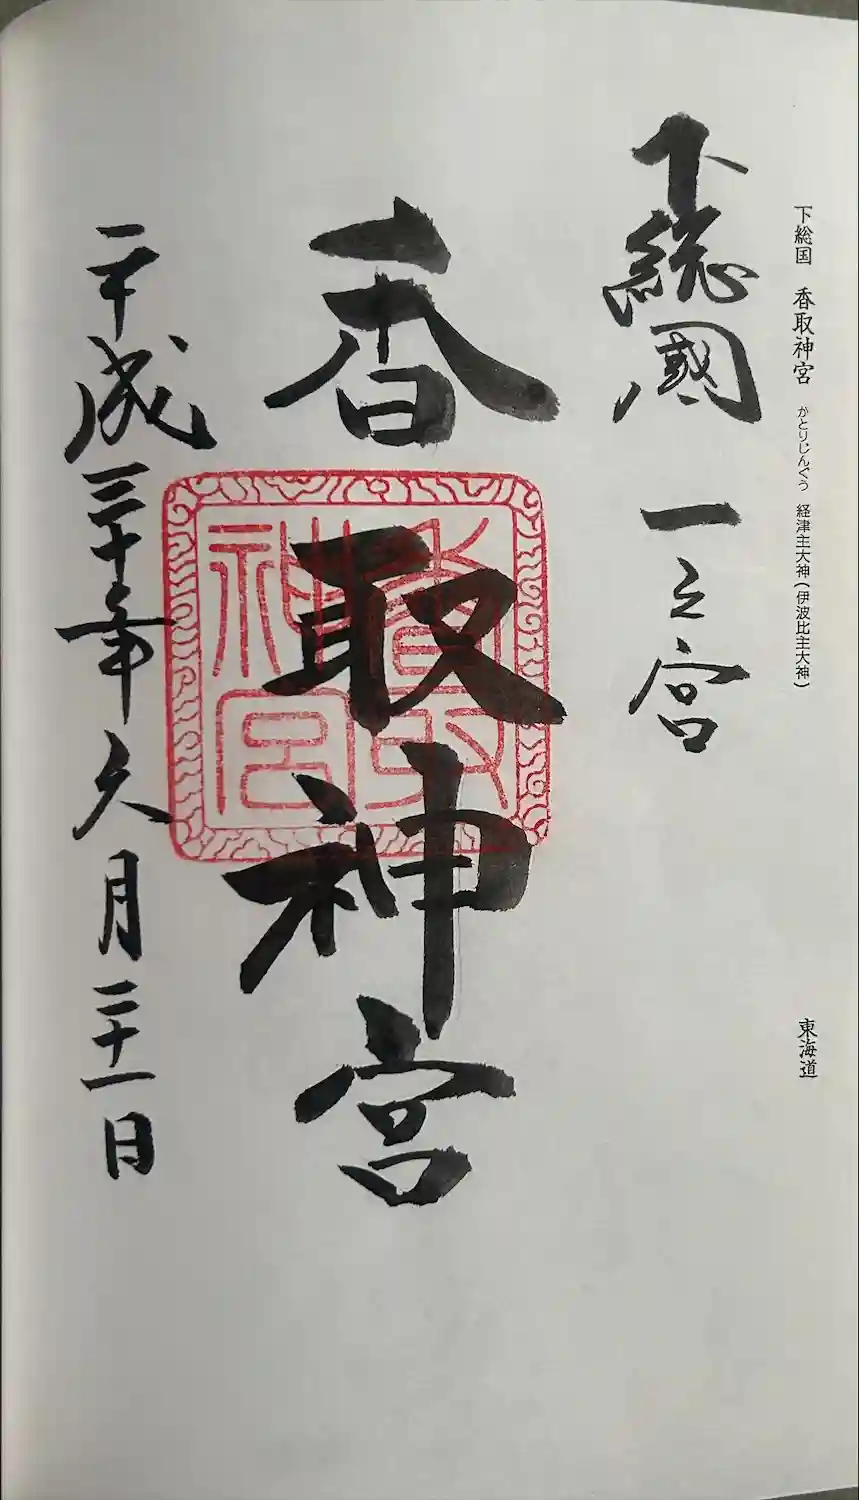 下総国　香取神宮　かとりじんぐう　経津主大神(伊波比主大神)
東海道
下総國　一之宮
香取神宮
香取神宮
平成三十年 月二十一日